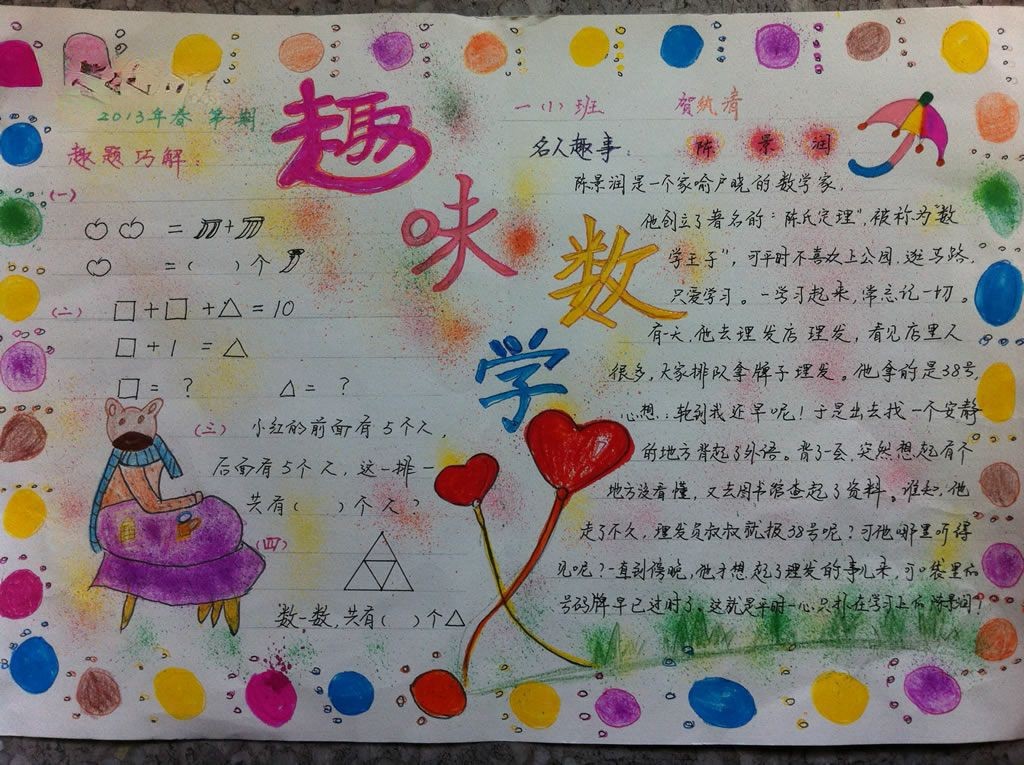 2013年春 第一期
趣味数学
趣题巧解:
(一)
=   +
=(  )个
(二) □+□+△=10
□+1=△
□=? △=?
(三) 小红的前面有5个人,
后面有5个人,这一排一
共有(  )个人?
(四)
数一数,共有(  )个△
一(1)班 贺
名人趣事: 陈景润
陈景润是一个家喻户晓的数学家,
他创立了著名的“陈氏定理”,被称为“数
学王子”,可平时不喜欢上公园,逛马路,
只爱学习。一学习起来,常忘记一切。
有一天,他去理发店理发,看见店里人
很多,大家排队拿牌子理发。他拿的是38号,
心想:轮到我还早呢!于是出去找一个安静
的地方背起了外语。背了一会,突然想起有个
地方没看懂,又去图书馆查起了资料。谁知,他
走了不久,理发员叔叔就报38号呢?可他哪里听得
见呢?一直到傍晚,他才想起了理发的事儿来,可口袋里的
号码牌早已过时了。这就是平时一心只扑在学习上的陈景润!